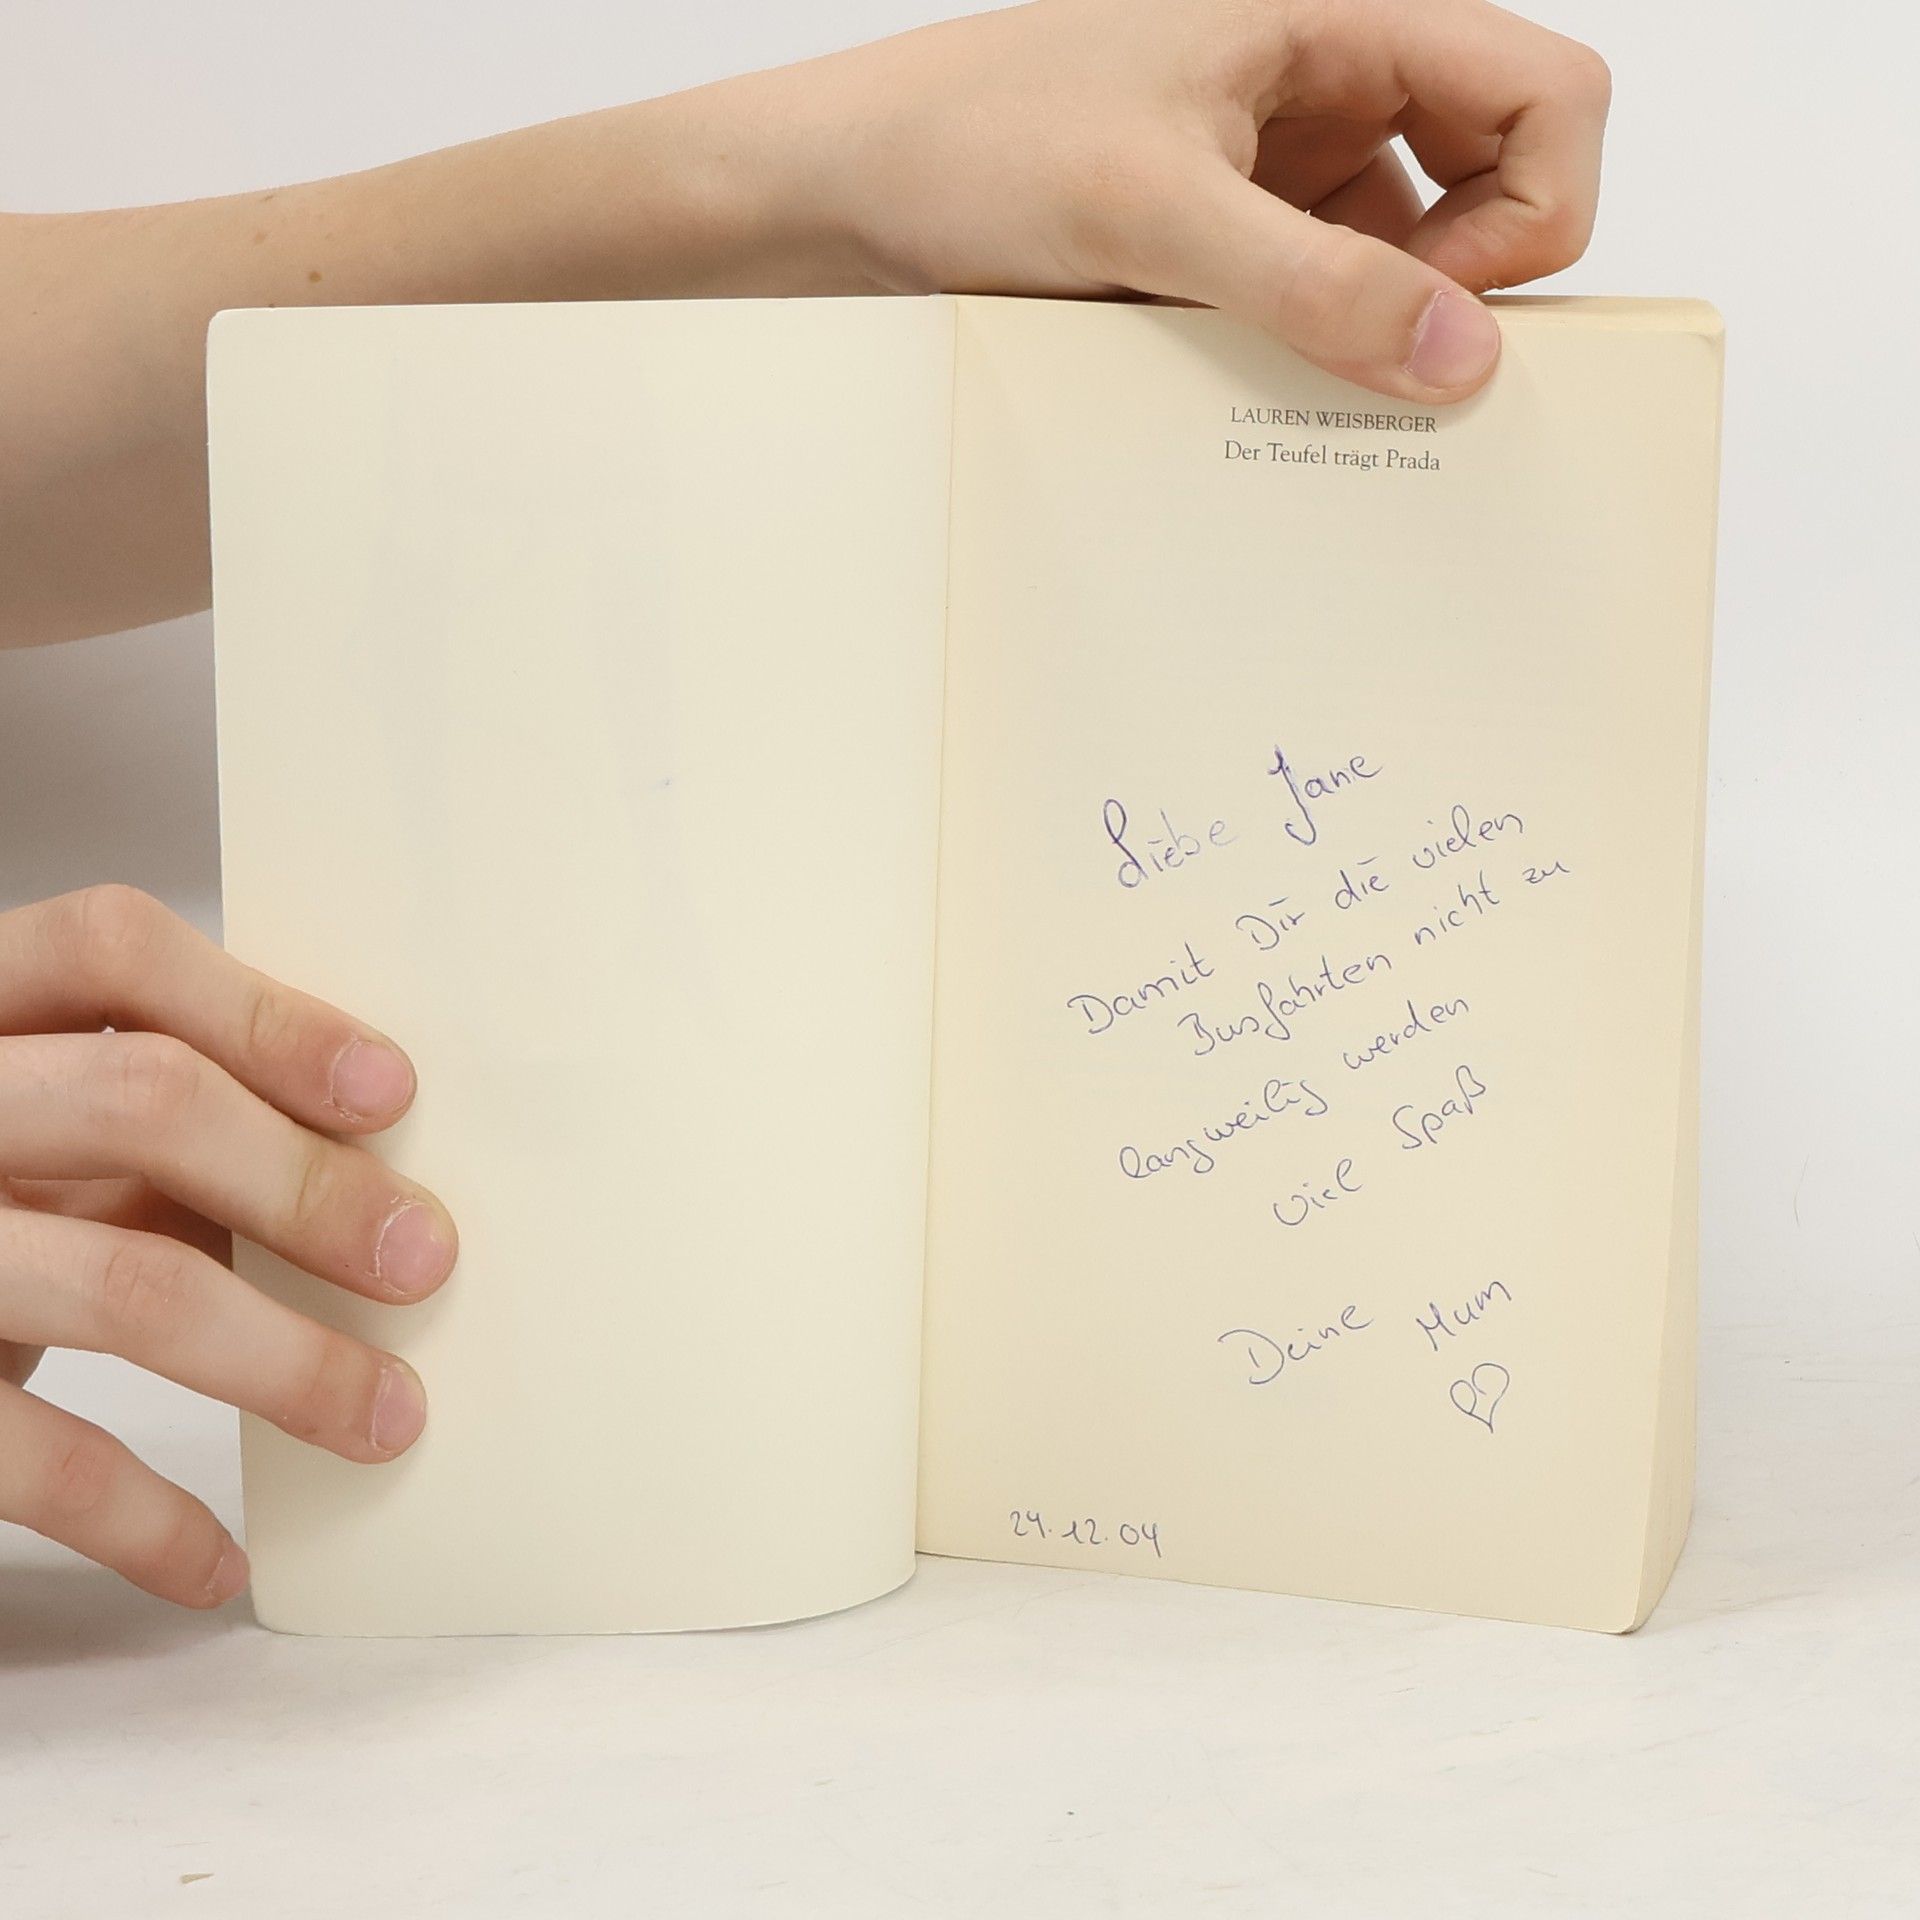 LAUREN WEISBERGER
Der Teufel trägt Prada
Liebe Jane
Damit Dir die vielen
Busfahrten nicht zu
langweilig werden
viel Spaß
Deine Mum
24.12.04